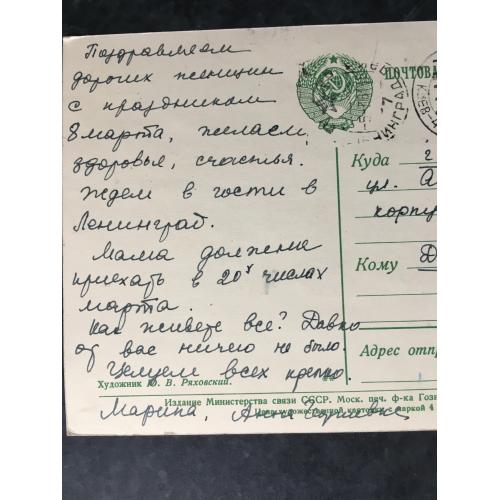 Поздравляем
дорогих женщин
с праздником
8 марта, желаем
здоровья, счастья.
Ждем в гости в
Ленинград.
Мама должна
приехать в 20х числах
марта.
Как живете все? Давно
от вас ничего не было
Целуем всех крепко.
Марина, Анна
ПОЧТОВА
Куда г
ул.
корпу
Кому
Адрес отпр
Художник Ю. В. Ряховский.
Издание Министерства связи СССР. Моск. печ. ф-ка Гозн
художественной карточки с маркой 4